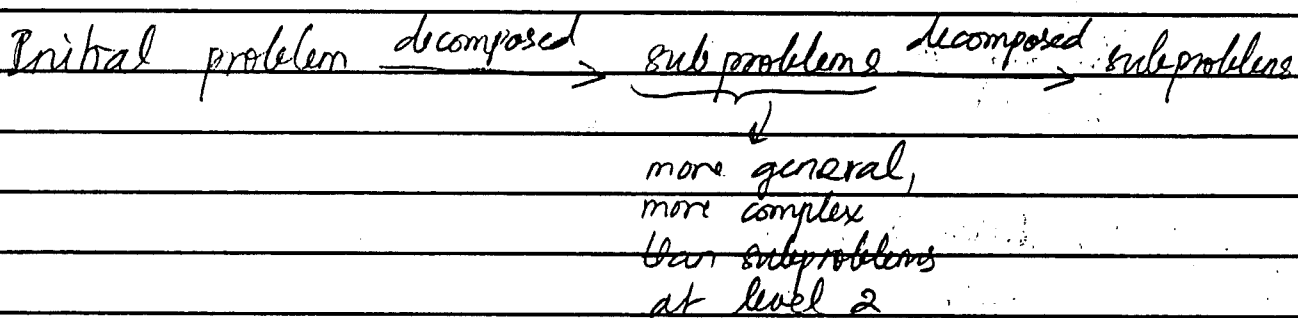 Initial problem decomposed subproblems decomposed subproblems
more general,
more complex
than subproblems
at level 2